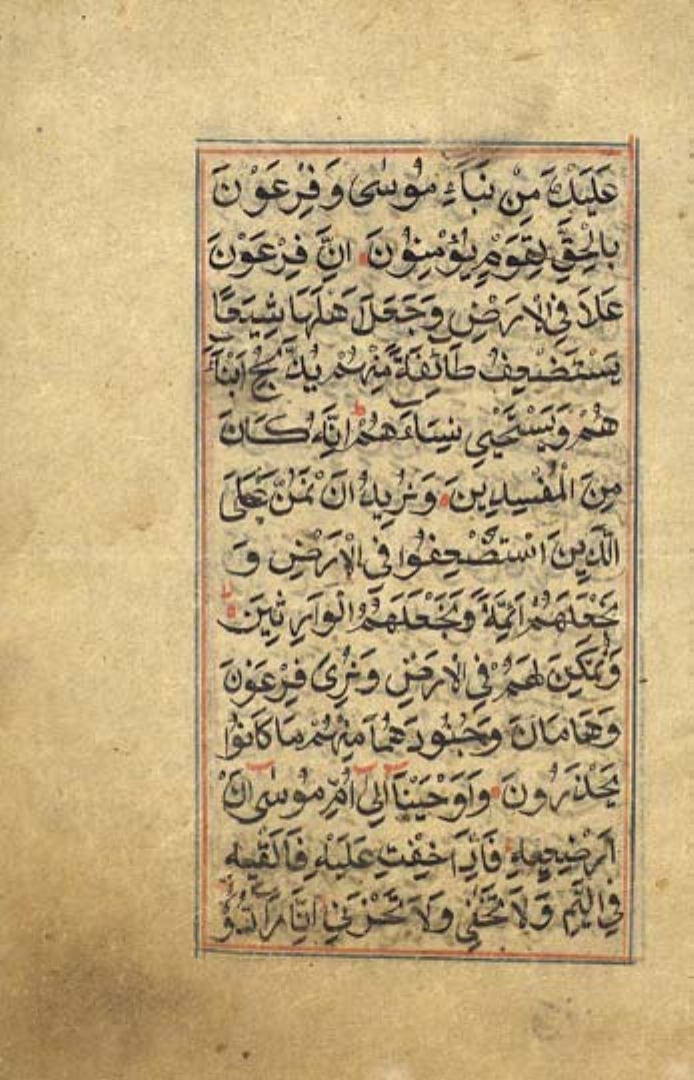 عَلَيْكَ مِنْ نَبَاءِ مُوسٰى وَفِرْعَوْنَ
بِالْحَقِّ لِقَوْمٍ يُؤْمِنُونَ اِنَّ فِرْعَوْنَ
عَلَا فِي الْاَرْضِ وَجَعَلَ اَهْلَهَا شِيَعًا
يَسْتَضْعِفُ طَآئِفَةً مِنْهُمْ يُذَبِّحُ اَبْنَآءَ
هُمْ وَيَسْتَحْيِي نِسَاءَهُمْ اِنَّهُ كَانَ
مِنَ الْمُفْسِدِينَ وَنُرِيدُ اَنْ نَمُنَّ عَلَى
الَّذِينَ اسْتُضْعِفُوا فِي الْاَرْضِ وَ
نَجْعَلَهُمْ اَئِمَّةً وَنَجْعَلَهُمُ الْوَارِثِينَ
وَنُمَكِّنَ لَهُمْ فِي الْاَرْضِ وَنُرِيَ فِرْعَوْنَ
وَهَامَانَ وَجُنُودَهُمَا مِنْهُمْ مَا كَانُوا
يَحْذَرُونَ وَاَوْحَيْنَآ اِلٰٓى اُمِّ مُوسٰٓى اَنْ
اَرْضِعِيهِ فَاِذَا خِفْتِ عَلَيْهِ فَاَلْقِيهِ
فِي الْيَمِّ وَلَا تَخَفِي وَلَا تَحْزَنِي اِنَّا رَآدُّوْ